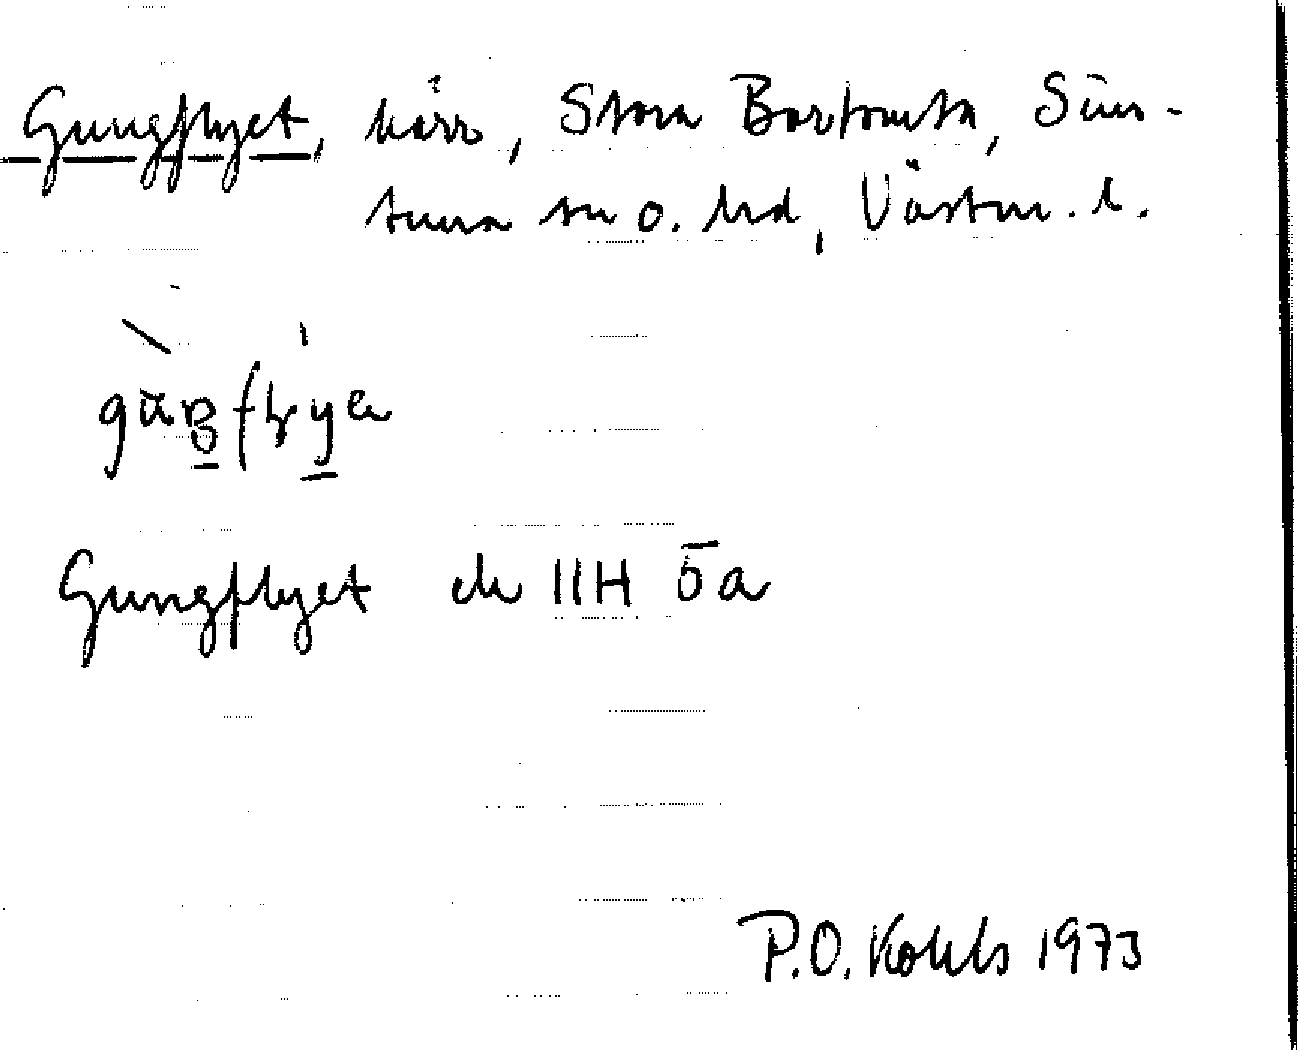 Gungflyet, kärr, Stora Bortomta, Sim-
tuna sn o. hd, Västm. l.
Gungflyet ek 11H 5a
P.O. Kohls 1973